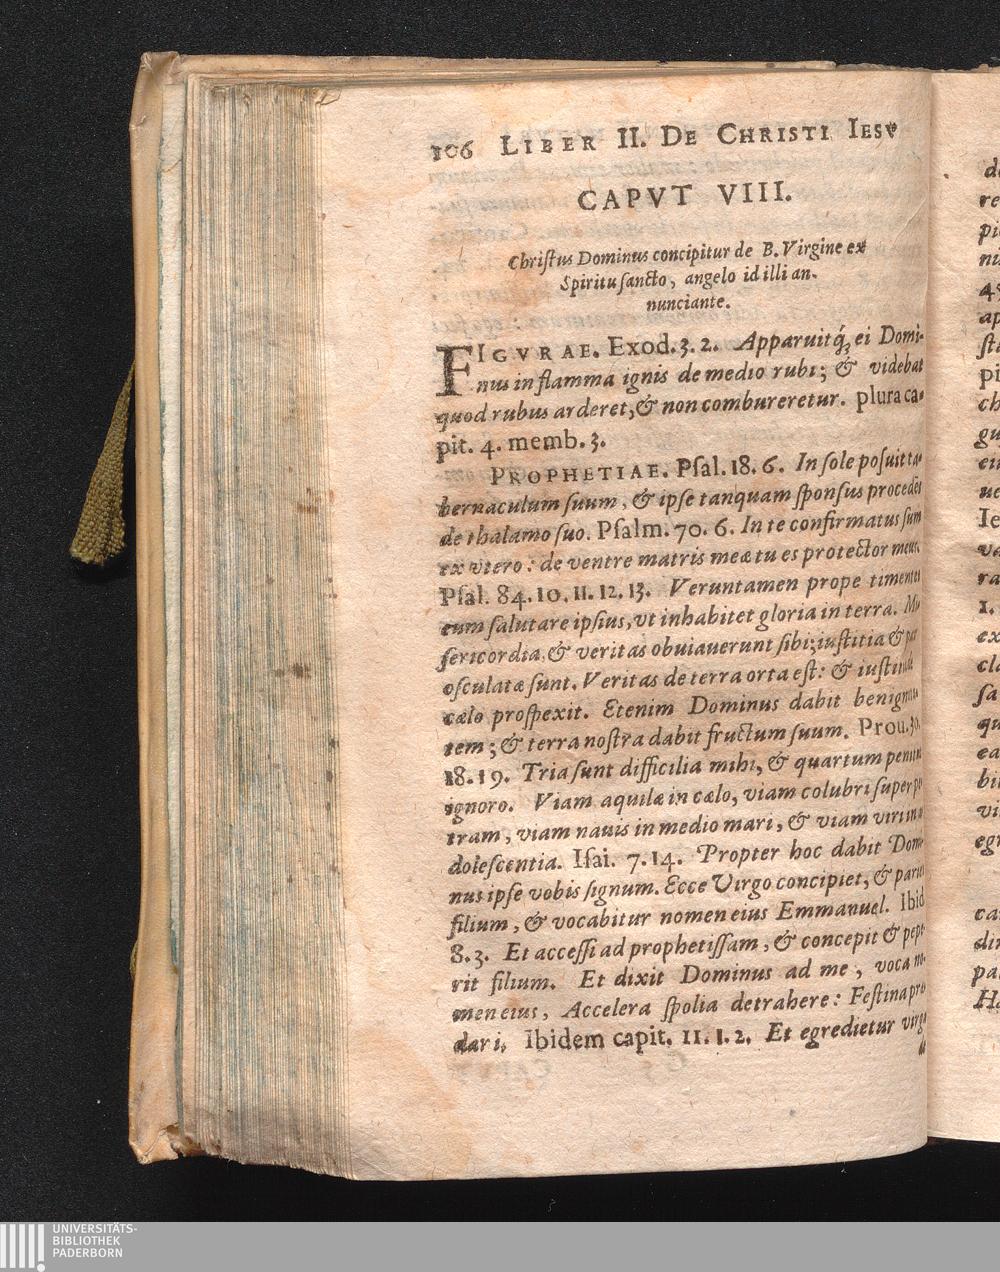 106 LIBER II. DE CHRISTI IESV
CAPVT VIII.
Christus Dominus concipitur de B. Virgine ex
Spiritu sancto, angelo id illi an-
nunciante.
FIGVRAE. Exod. 3. 2. Apparuitq́; ei Domi-
nus in flamma ignis de medio rubi; & videbat
quod rubus arderet, & non combureretur. plura ca-
pit. 4. memb. 3.
PROPHETIAE. Psal. 18. 6. In sole posuit ta-
bernaculum suum, & ipse tanquam sponsus procedens
de thalamo suo. Psalm. 70. 6. In te confirmatus sum
ex vtero: de ventre matris meæ tu es protector meus.
Psal. 84. 10. 11. 12. 13. Veruntamen prope timentes
eum salutare ipsius, vt inhabitet gloria in terra. Mi-
sericordia, & veritas obuiauerunt sibi; iustitia & pax
osculatæ sunt. Veritas de terra orta est: & iustitia de
cælo prospexit. Etenim Dominus dabit benignita-
tem; & terra nostra dabit fructum suum. Prou. 30.
18. 19. Tria sunt difficilia mihi, & quartum penitus
ignoro. Viam aquilæ in cælo, viam colubri super pe-
tram, viam nauis in medio mari, & viam viri in a-
dolescentia. Isai. 7. 14. Propter hoc dabit Domi-
nus ipse vobis signum. Ecce Virgo concipiet, & pariet
filium, & vocabitur nomen eius Emmanuel. Ibid
8. 3. Et accessi ad prophetissam, & concepit & pepe-
rit filium. Et dixit Dominus ad me, voca no-
men eius, Accelera spolia detrahere: Festina præ-
dari. Ibidem capit. 11. 1. 2. Et egredietur virga
de
UNIVERSITÄTS-
BIBLIOTHEK
PADERBORN